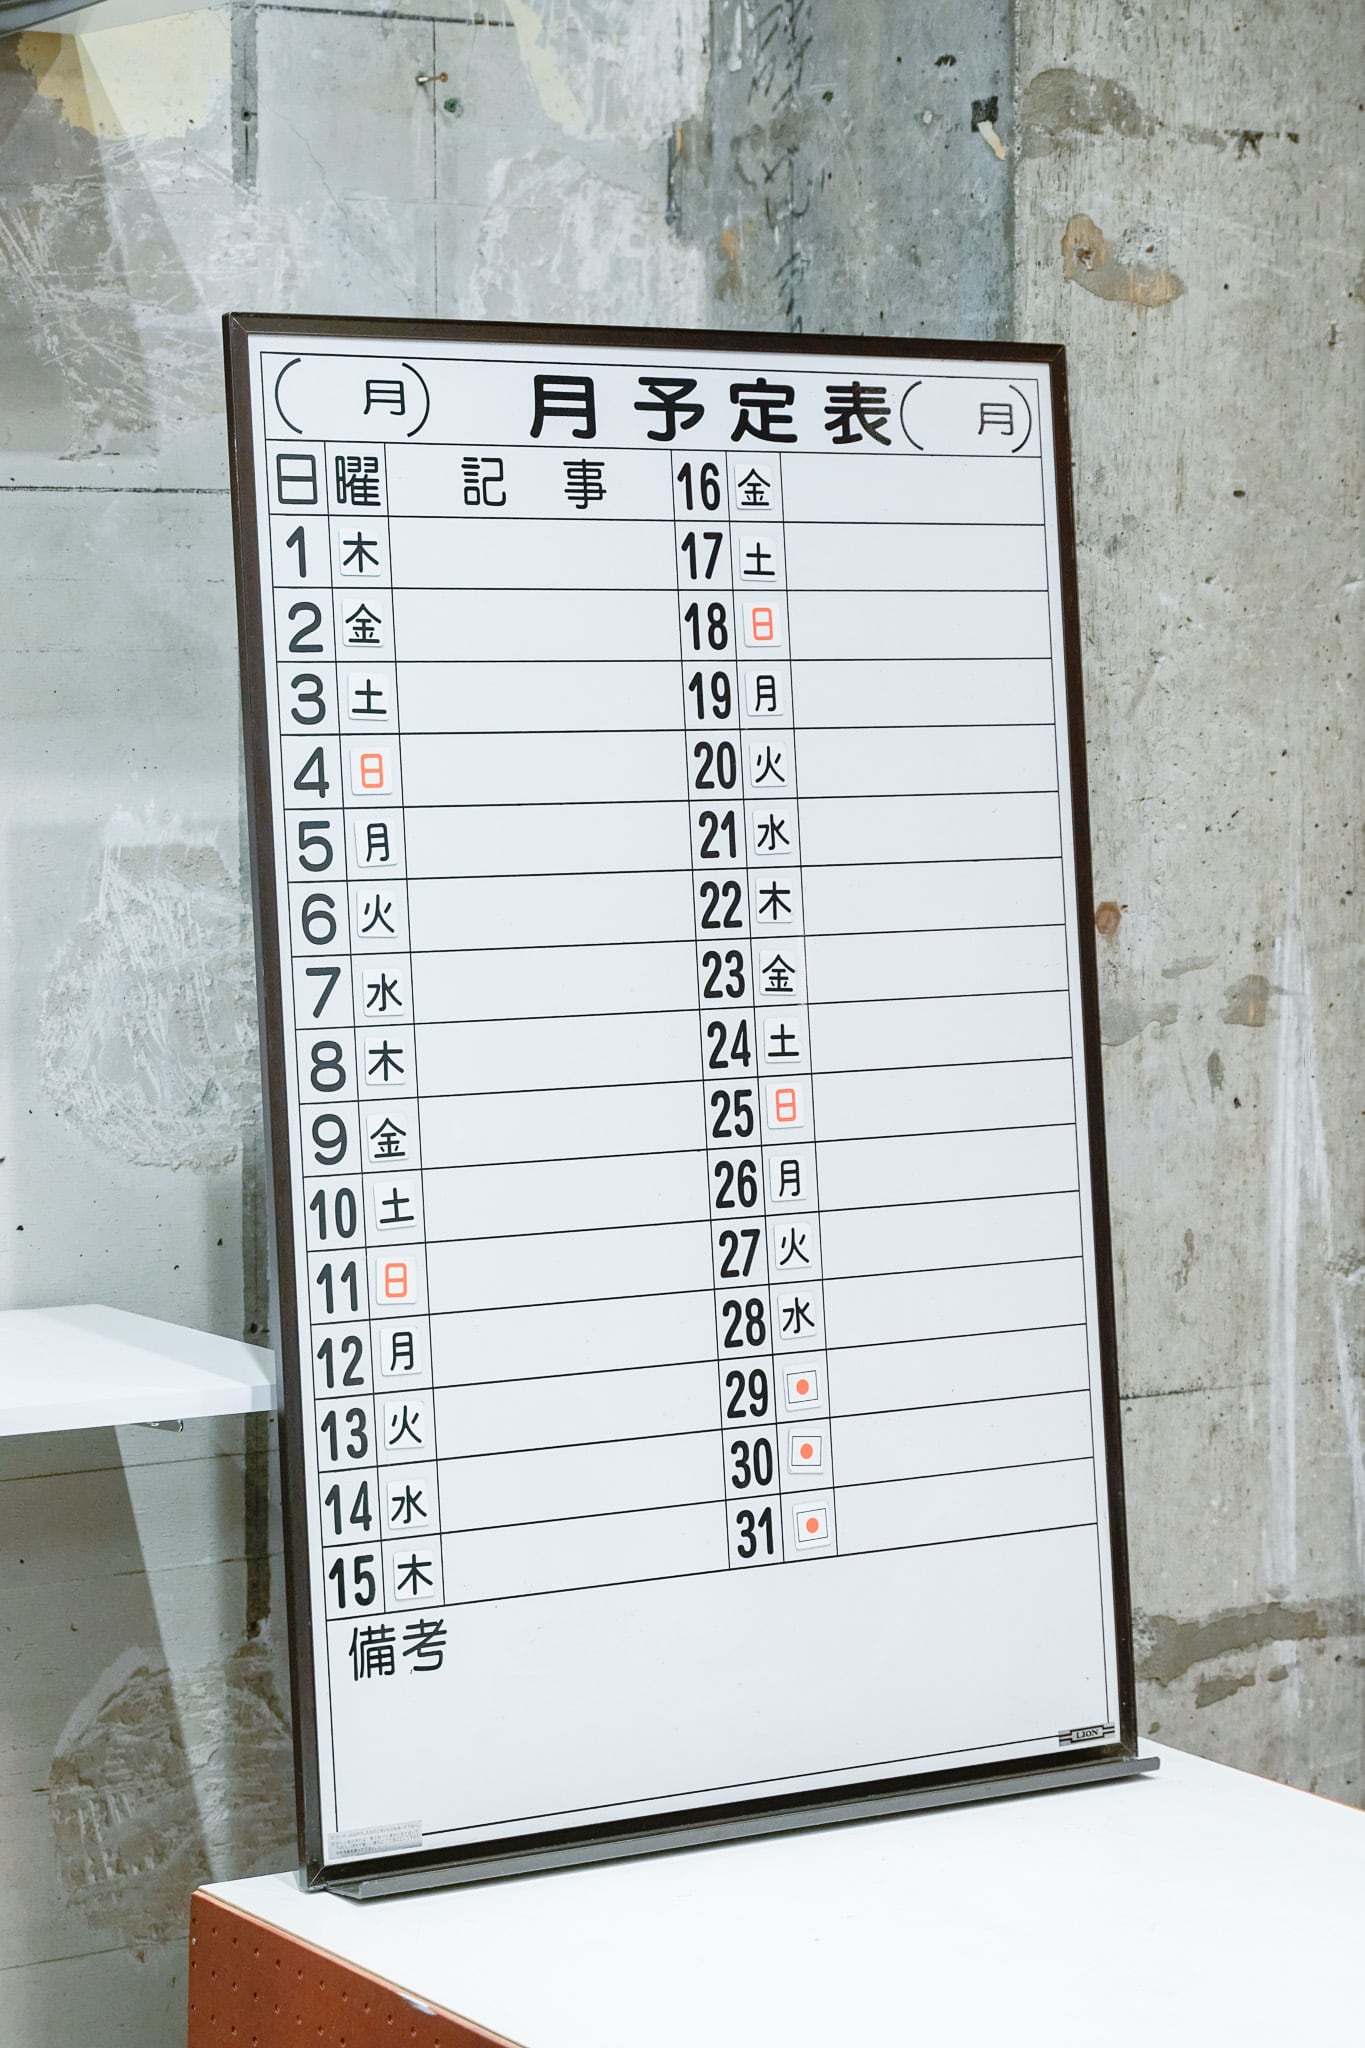 ( 月) 月予定表 ( 月)
日 曜 記 事
1 木
2 金
3 土
4 日
5 月
6 火
7 水
8 木
9 金
10 土
11 日
12 月
13 火
14 水
15 木
16 金
17 土
18 日
19 月
20 火
21 水
22 木
23 金
24 土
25 日
26 月
27 火
28 水
29
30
31
備考
LION